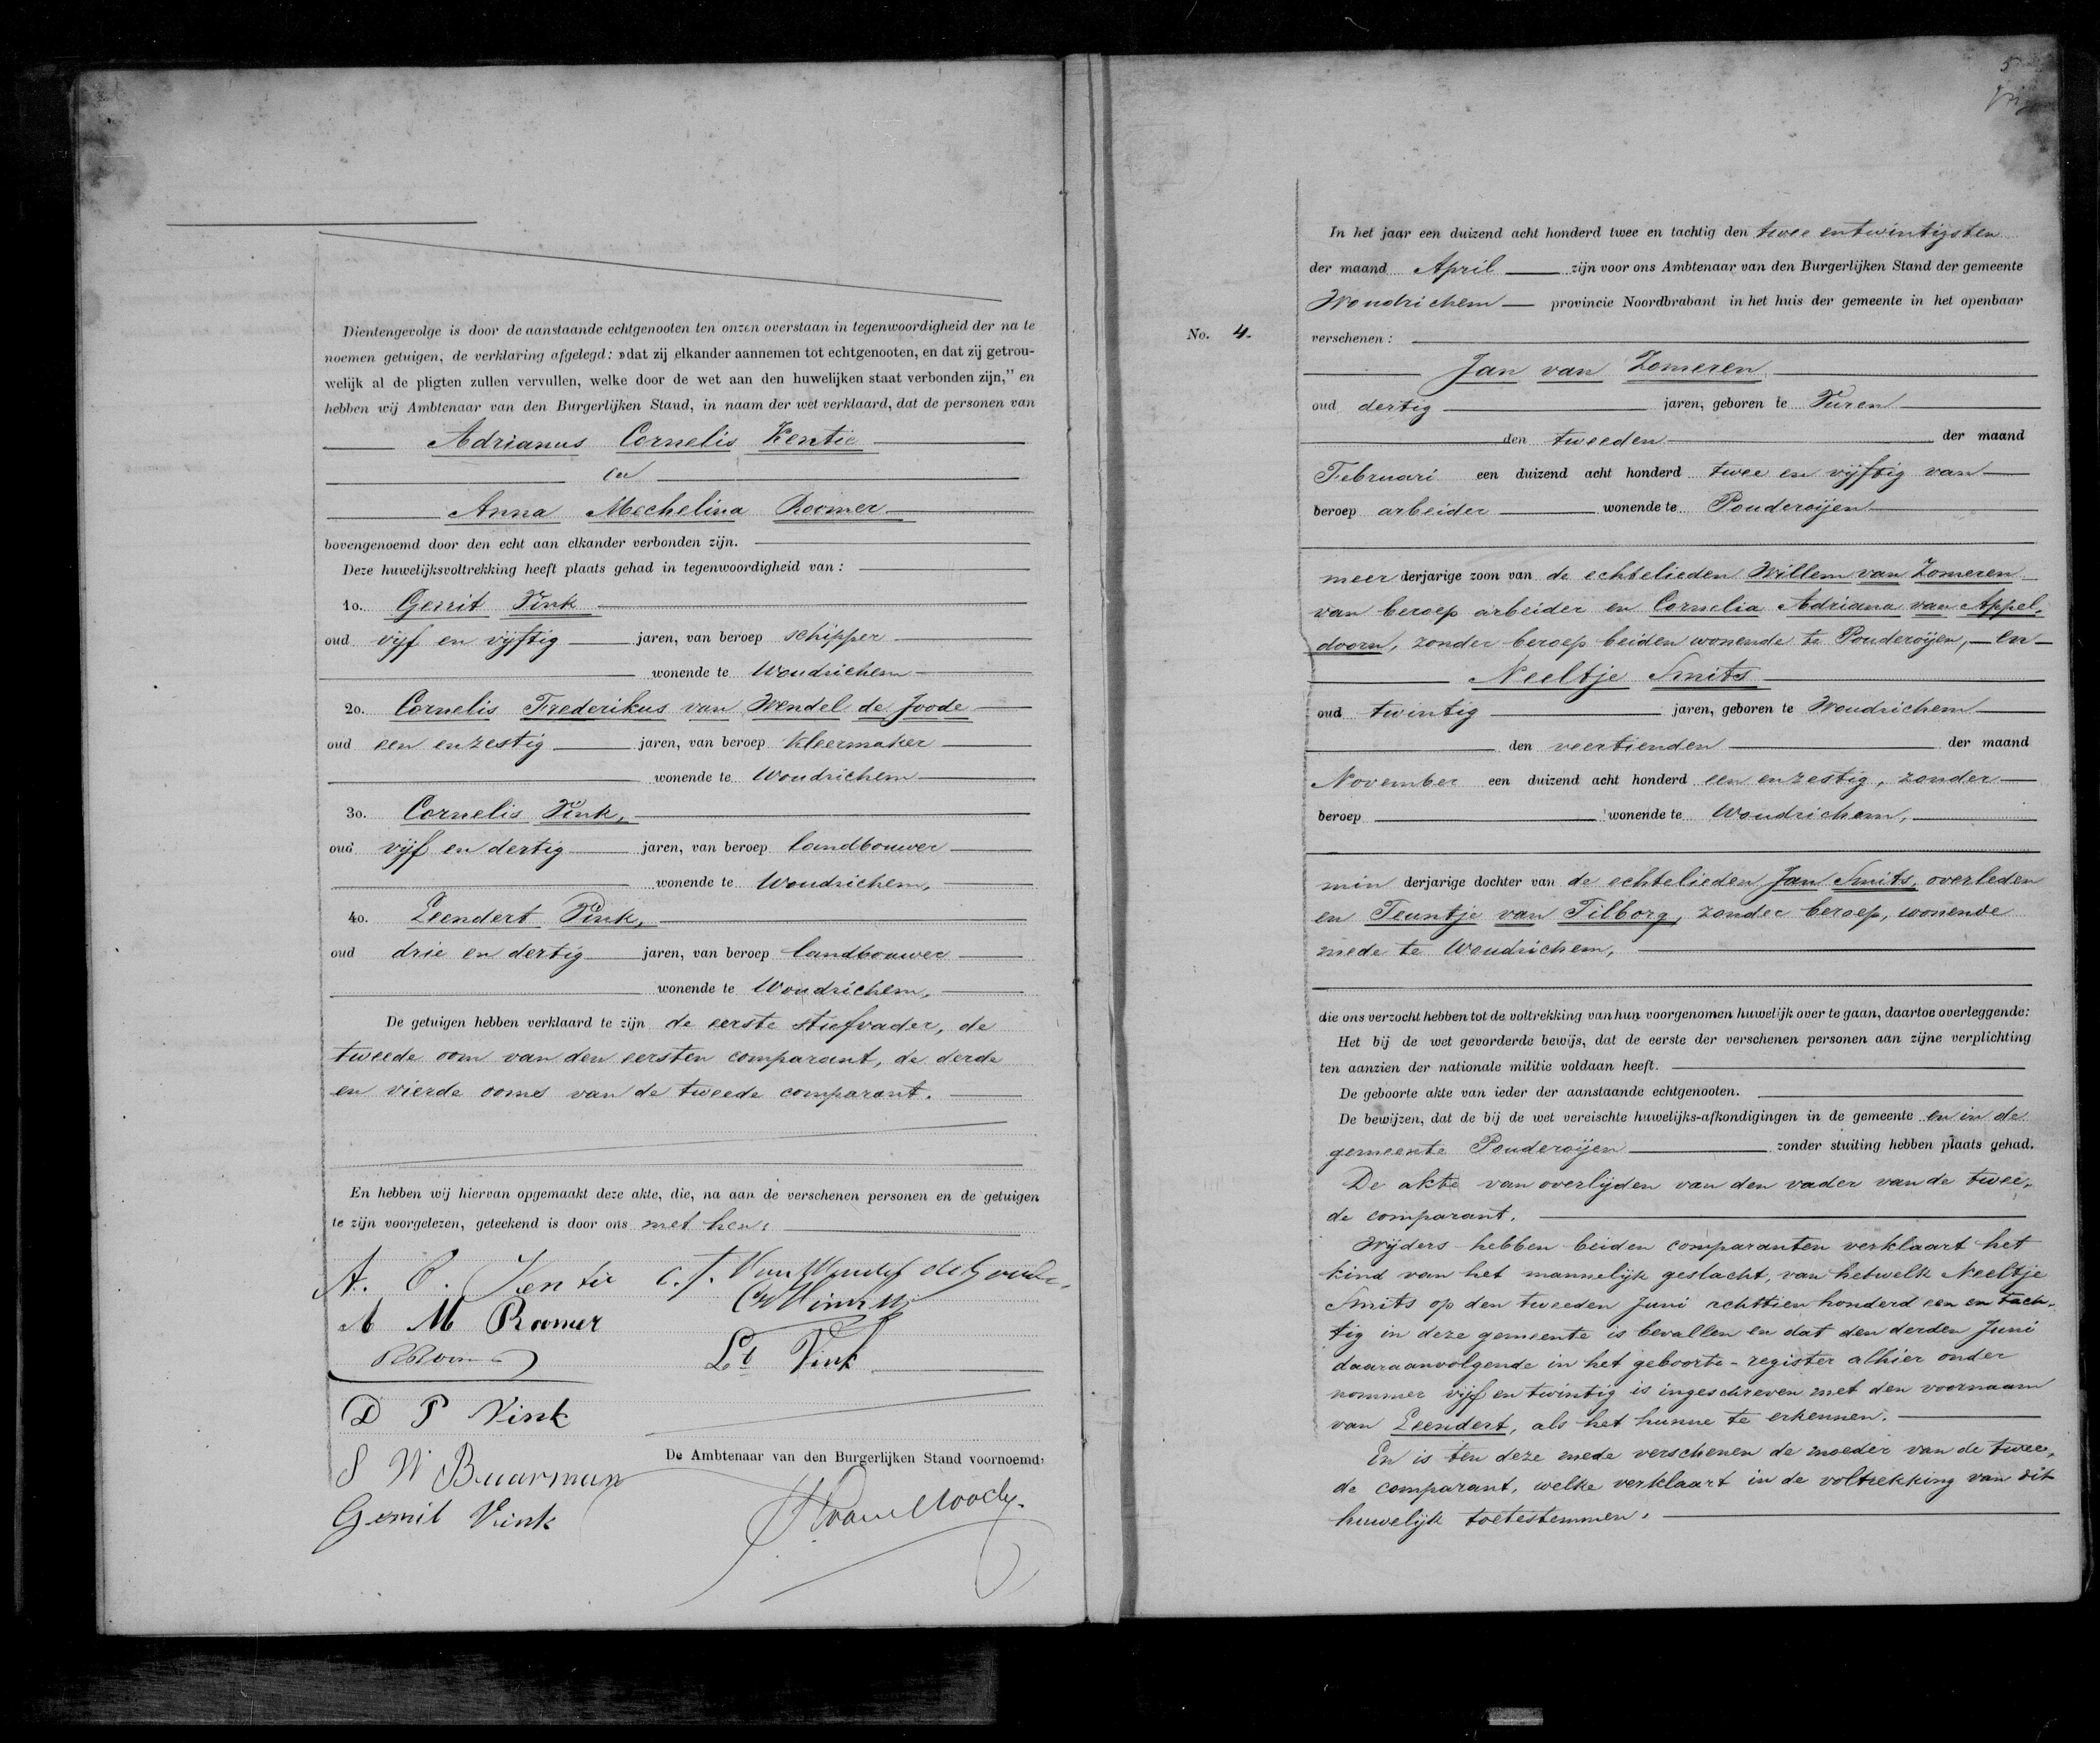 Dientengevolge is door de aanstaande echtgenooten ten onzen overstaan in tegenwoordigheid der na te
noemen getuigen, de verklaring afgelegd: »dat zij elkander aannemen tot echtgenooten, en dat zij getrou-
welijk al de pligten zullen vervullen, welke door de wet aan den huwelijken staat verbonden zijn,” en
hebben wij Ambtenaar van den Burgerlijken Stand, in naam der wet verklaard, dat de personen van
Adrianus Cornelis Kentie
en
Anna Mechelina Roomer
bovengenoemd door den echt aan elkander verbonden zijn.
Deze huwelijksvoltrekking heeft plaats gehad in tegenwoordigheid van:
1o. Gerrit Vink
oud vijf en vijftig jaren, van beroep schipper
wonende te Woudrichem
2o. Cornelis Frederikus van Wendel de Joode
oud een en zestig jaren, van beroep kleermaker
wonende te Woudrichem
3o. Cornelis Vink,
oud vijf en dertig jaren, van beroep landbouwer
wonende te Woudrichem,
4o. Leendert Vink,
oud drie en dertig jaren, van beroep landbouwer
wonende te Woudrichem,
De getuigen hebben verklaard te zijn de eerste stiefvader, de
tweede oom van den eersten comparant, de derde
en vierde ooms van de tweede comparant.
En hebben wij hiervan opgemaakt deze akte, die, na aan de verschenen personen en de getuigen
te zijn voorgelezen, geteekend is door ons met hen.
A. C. Kentie
A M Roomer
D P Vink
S W Buurman
Gerrit Vink
Lt Vink
De Ambtenaar van den Burgerlijken Stand voornoemd,
5
No. 4.
In het jaar een duizend acht honderd twee en tachtig den twee en twintigsten
der maand April zijn voor ons Ambtenaar van den Burgerlijken Stand der gemeente
Woudrichem provincie Noordbrabant in het huis der gemeente in het openbaar
verschenen:
Jan van Zomeren
oud dertig jaren, geboren te Vuren
den tweeden der maand
Februari een duizend acht honderd twee en vijftig van
beroep arbeider wonende te Poederoijen
meer derjarige zoon van de echtelieden Willem van Zomeren
van beroep arbeider en Cornelia Adriana van Appel-
doorn, zonder beroep beiden wonende te Poederoijen, en
Neeltje Smits
oud twintig jaren, geboren te Woudrichem
den veertienden der maand
November een duizend acht honderd een en zestig, zonder
beroep wonende te Woudrichem,
min derjarige dochter van de echtelieden Jan Smits, overleden
en Teuntje van Tilborg, zonder beroep, wonende
mede te Woudrichem,
die ons verzocht hebben tot de voltrekking van hun voorgenomen huwelijk over te gaan, daartoe overleggende:
Het bij de wet gevorderde bewijs, dat de eerste der verschenen personen aan zijne verplichting
ten aanzien der nationale militie voldaan heeft.
De geboorte akte van ieder der aanstaande echtgenooten.
De bewijzen, dat de bij de wet vereischte huwelijks-afkondigingen in de gemeente en in de
gemeente Poederoijen zonder stuiting hebben plaats gehad.
De akte van overlijden van den vader van de twee-
de comparant.
Wijders hebben beiden comparanten verklaart het
kind van het mannelijk geslacht, van hetwelk Neeltje
Smits op den tweeden Juni achttien honderd een en tach-
tig in deze gemeente is bevallen en dat den derden Juni
daaraanvolgende in het geboorte-register alhier onder
nommer vijf en twintig is ingeschreven met den voornaam
van Leendert, als het hunne te erkennen.
En is ten deze mede verschenen de moeder van de twee-
de comparant, welke verklaart in de voltrekking van dit
huwelijk toetestemmen.